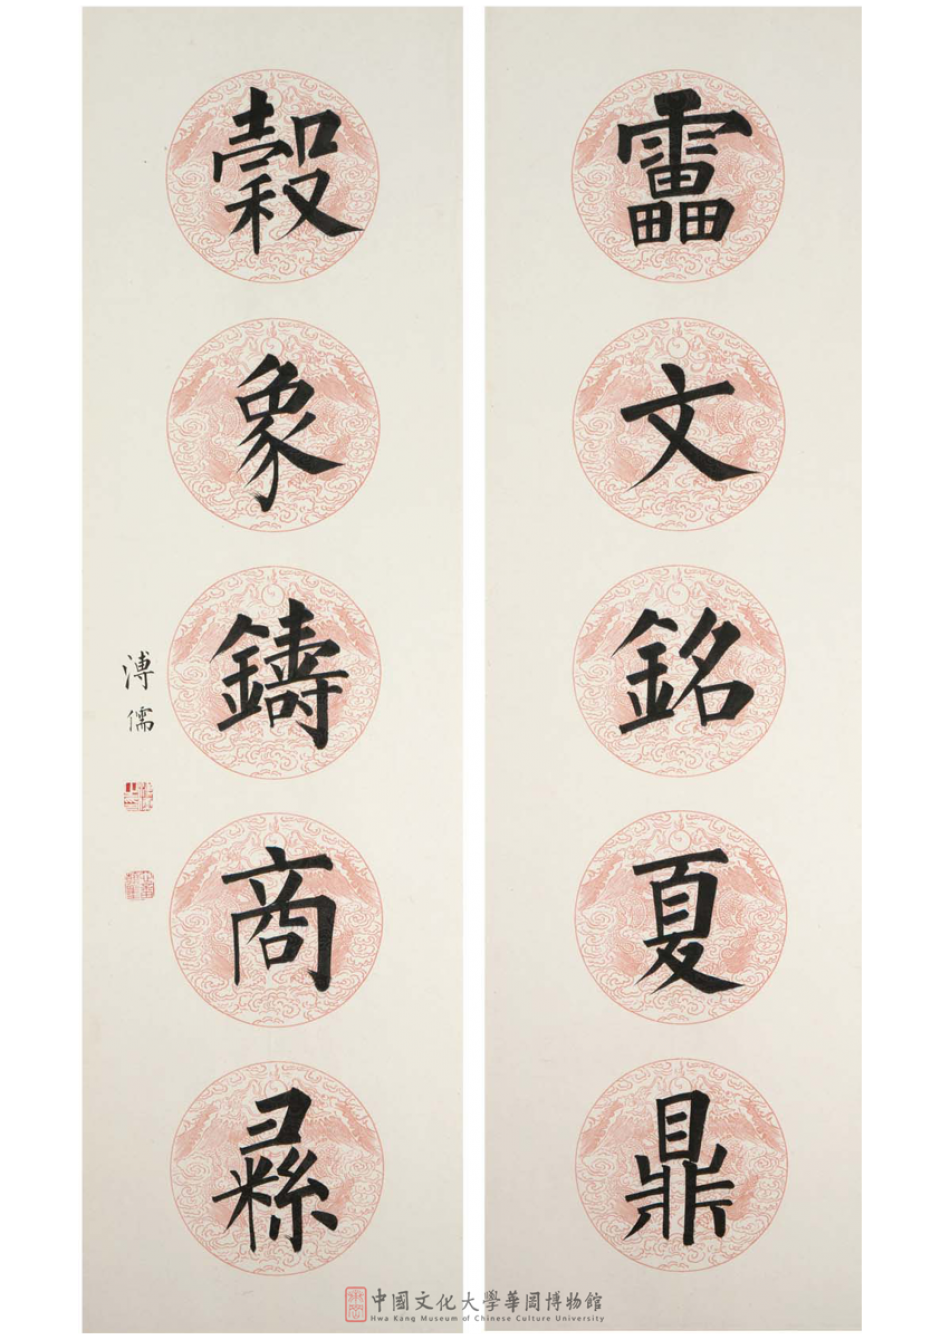 靁文銘夏鼎
穀象鑄商彝
溥儒
中國文化大學華岡博物館
Hwa Kang Museum of Chinese Culture University